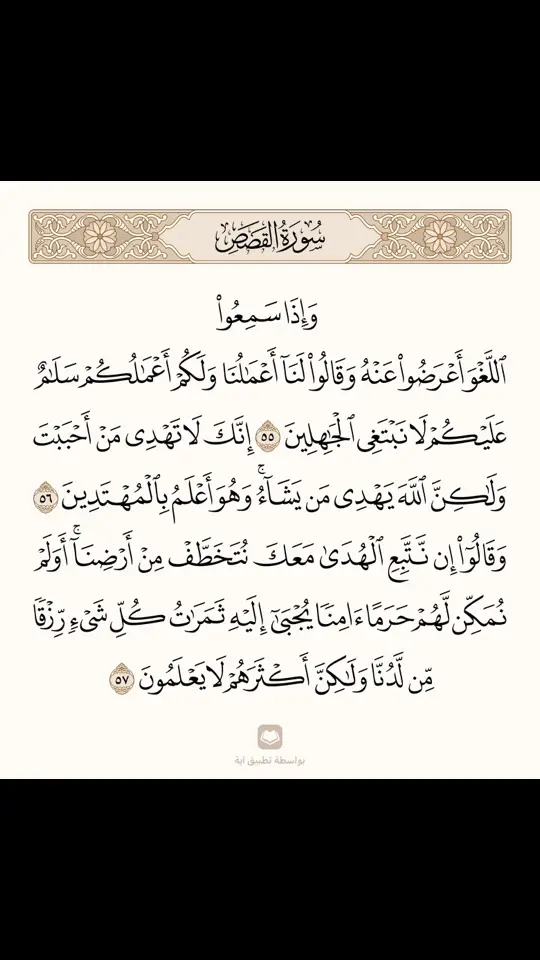 سُورَةُ القَصَصِ
وَإِذَا سَمِعُوا۟
ٱللَّغْوَ أَعْرَضُوا۟ عَنْهُ وَقَالُوا۟ لَنَآ أَعْمَـٰلُنَا وَلَكُمْ أَعْمَـٰلُكُمْ سَلَـٰمٌ
عَلَيْكُمْ لَا نَبْتَغِى ٱلْجَـٰهِلِينَ ٥٥ إِنَّكَ لَا تَهْدِى مَنْ أَحْبَبْتَ
وَلَـٰكِنَّ ٱللَّهَ يَهْدِى مَن يَشَآءُ ۚ وَهُوَ أَعْلَمُ بِٱلْمُهْتَدِينَ ٥٦
وَقَالُوٓا۟ إِن نَّتَّبِعِ ٱلْهُدَىٰ مَعَكَ نُتَخَطَّفْ مِنْ أَرْضِنَآ ۚ أَوَلَمْ
نُمَكِّن لَّهُمْ حَرَمًا ءَامِنًا يُجْبَىٰٓ إِلَيْهِ ثَمَرَٰتُ كُلِّ شَىْءٍ رِّزْقًا
مِّن لَّدُنَّا وَلَـٰكِنَّ أَكْثَرَهُمْ لَا يَعْلَمُونَ ٥٧
بواسطة تطبيق اية